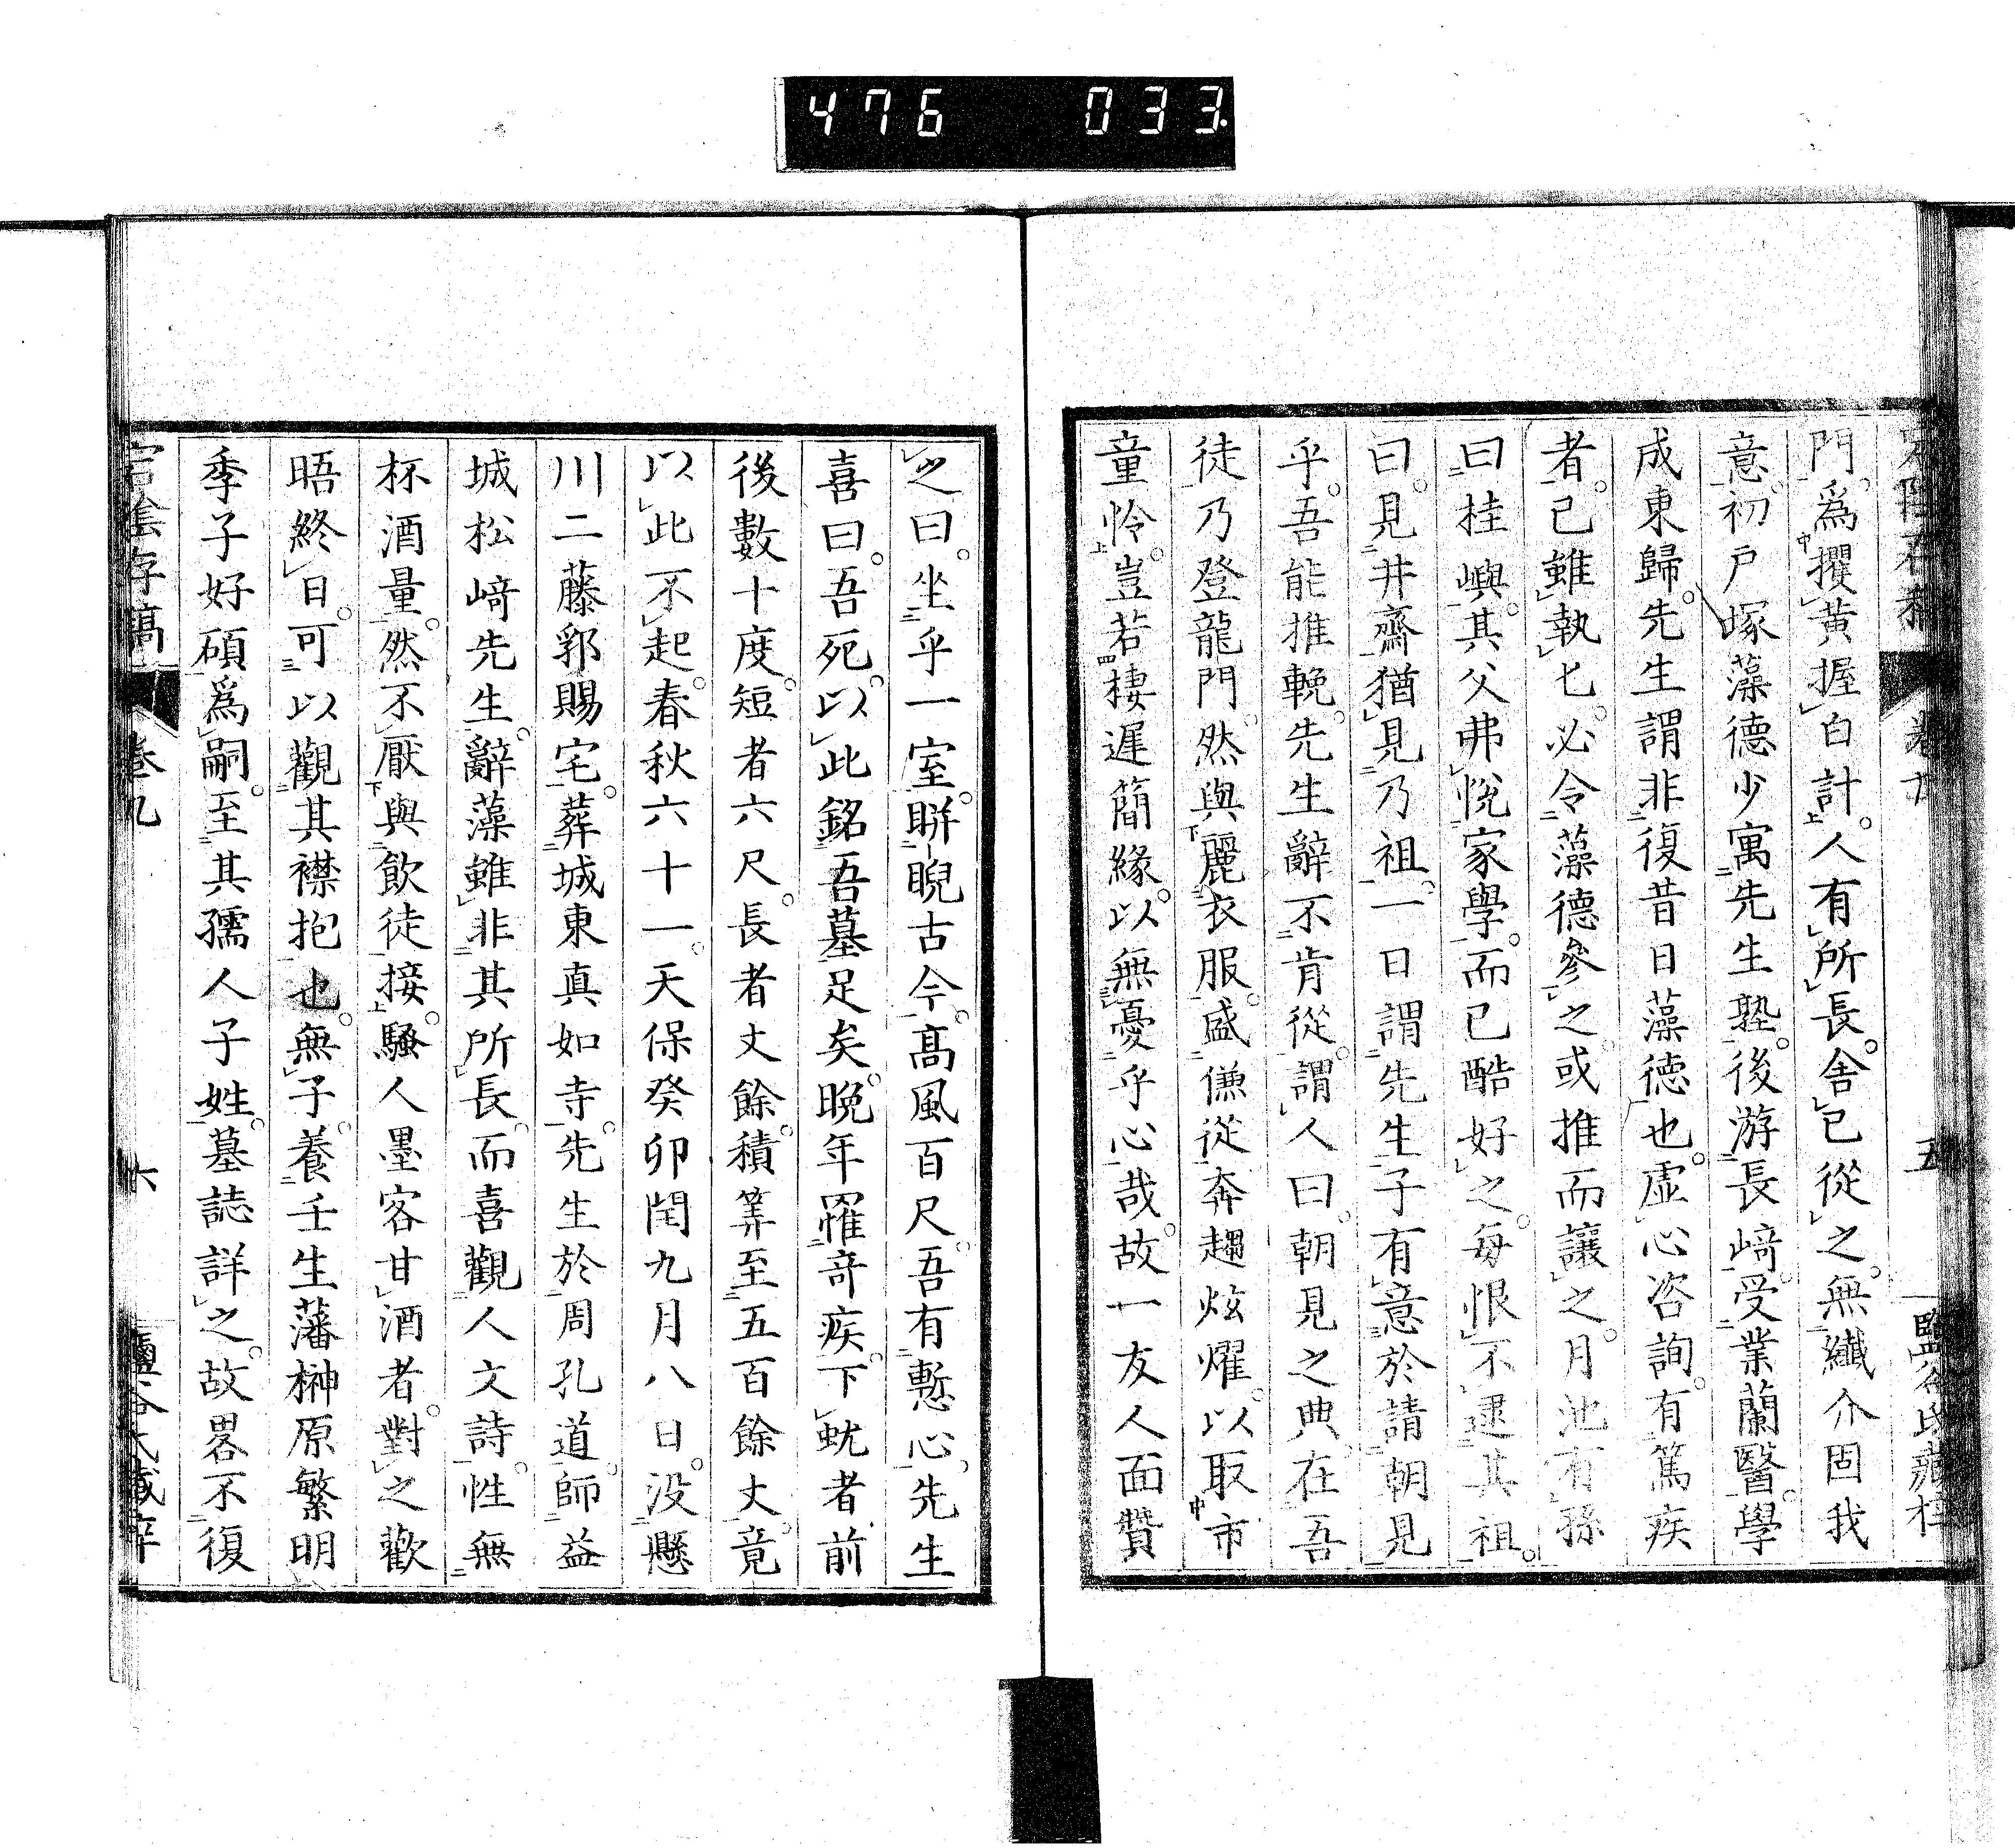 476 033.
五
門。爲攫黃握白計。人有所長。舍已從之。無纖介固我
意。初戸塚藻德少寓先生塾。後游長﨑。受業蘭醫。學
成東歸。先生謂非復昔日藻徳也。虛心咨詢。有篤疾
者。已雖執匕。必令藻德參之。或推而讓之。月池有孫
曰桂嶼。其父弗悅家學。而已酷好之。每恨不逮其祖。
曰。見井齋猶見乃祖。一日謂先生子有意於請朝見
乎。吾能推輓。先生辭不肯從。謂人曰。朝見之典。在吾
徒乃登龍門。然與麗衣服。盛傔從。奔趨炫燿。以取市
童怜。豈若棲遲簡緣。以無憂乎心哉。故一友人面贊
之曰。坐乎一室。睥睨古今。高風百尺。吾有慙心。先生
喜曰。吾死。以此銘吾墓足矣。晩年罹奇疾。下蚘者前
後數十度。短者六尺。長者丈餘。積筭至五百餘丈。竟
以此不起。春秋六十一。天保癸卯閏九月八日。没懸
川二藤郭賜宅。葬城東真如寺。先生於周孔道。師益
城松﨑先生。辭藻雖非其所長。而喜觀人文詩。性無
杯酒量。然不厭與飲徒接。騷人墨客甘酒者。對之歡
晤終日。可以觀其襟抱也。無子。養壬生藩榊原繁明
季子好碩爲嗣。至其孺人子姓。墓誌詳之。故畧不復
宕陰存稿 卷九 六